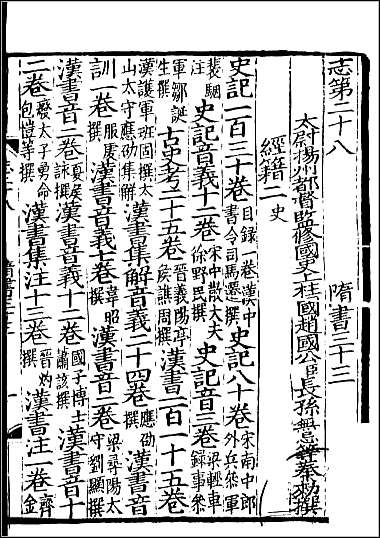 志第二十八 隋書三十三
太尉揚州都督監修國史上柱國趙國公臣長孫無忌等奉敕撰
經籍二 史
史記一百三十卷 目録一卷漢中書令司馬遷撰 史記八十卷 宋南中郎外兵參軍
裴駰注 史記音義十二卷 宋中散大夫徐野民撰 史記音三卷 梁輕車録事參
軍鄒誕生撰 古史考二十五卷 晉義陽亭侯譙周撰 漢書一百一十五卷
漢護軍班固撰太山太守應劭集解 漢書集解音義二十四卷 應劭撰 漢書音
訓一卷 服虔撰 漢書音義七卷 韋昭撰 漢書音二卷 梁尋陽太守劉顯撰
漢書音二卷 夏侯詠撰 漢書音義十二卷 國子博士蕭該撰 漢書音十
二卷 廢太子勇命包愷等撰 漢書集注十三卷 晉灼撰 漢書注一卷 齊金